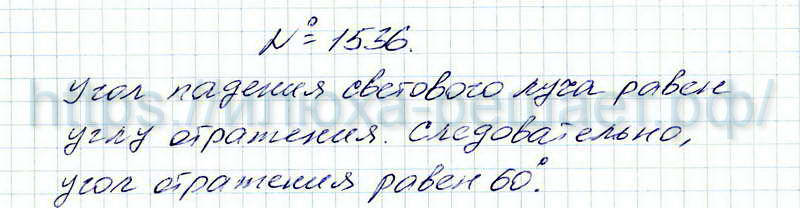 № 1536.
Угол падения светового луча равен
углу отражения. Следовательно,
угол отражения равен 60°.